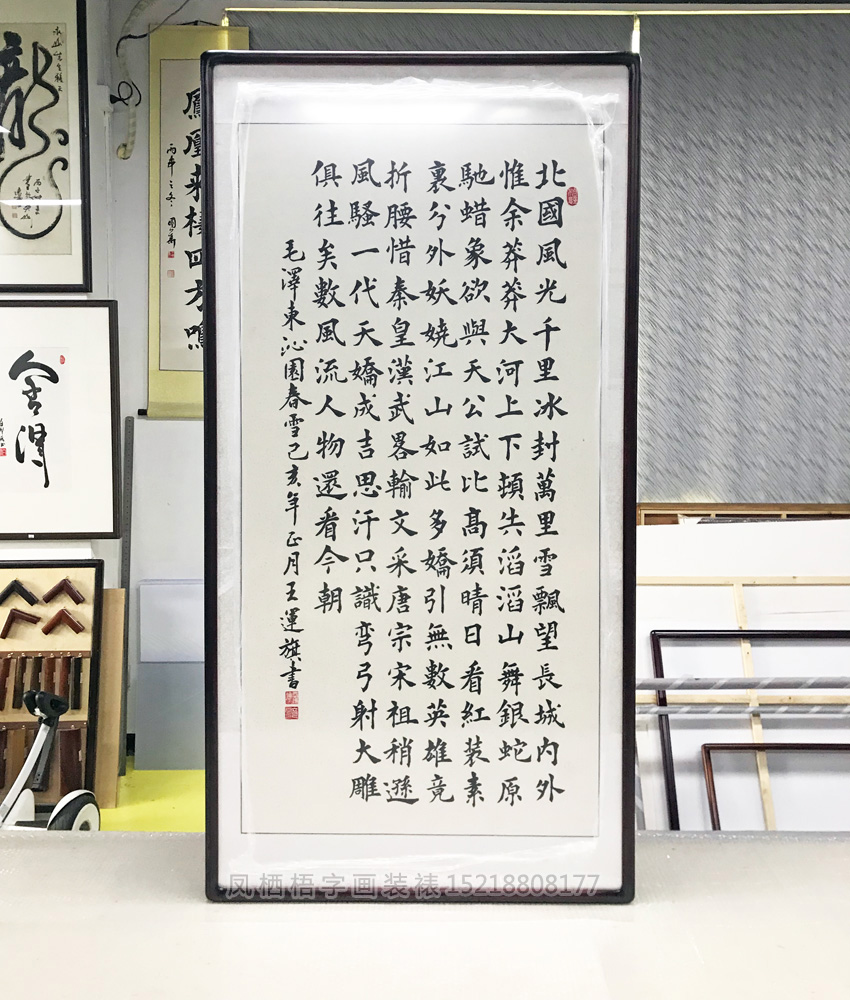 北國風光千里冰封萬里雪飄望長城内外
惟余莽莽大河上下頓失滔滔山舞銀蛇原
馳蜡象欲與天公試比髙須晴日看紅装素
裹分外妖娆江山如此多嬌引無數英雄竟
折腰惜秦皇漢武畧輸文采唐宗宋祖稍遜
風騷一代天嬌成吉思汗只識弯弓射大雕
俱往矣數風流人物還看今朝
毛澤東沁園春雪己亥年正月王運旗書
鳳凰來棲四方鳴
龍
舍得
凤栖梧字画装裱15218808177